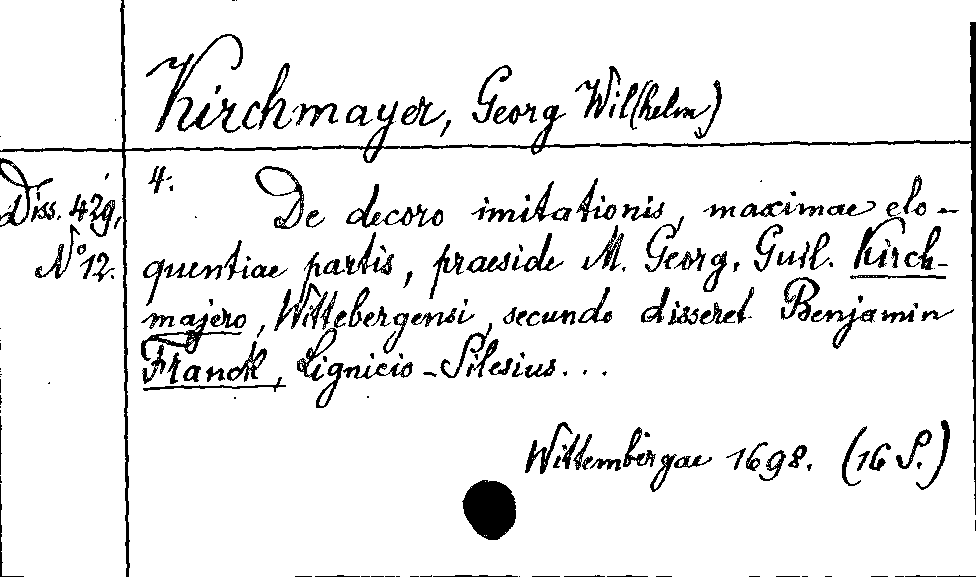 Kirchmayer, Georg Wil(helm)
Diss. 429,
N° 12.
4.
De decoro imitationis, maximae elo-
quentiae partis, praeside M. Georg. Guil. Kirch-
majero, Wittebergensi, secundo disseret Benjamin
Franck, Lignicio-Silesius...
Wittembergae 1698. (16 S.)